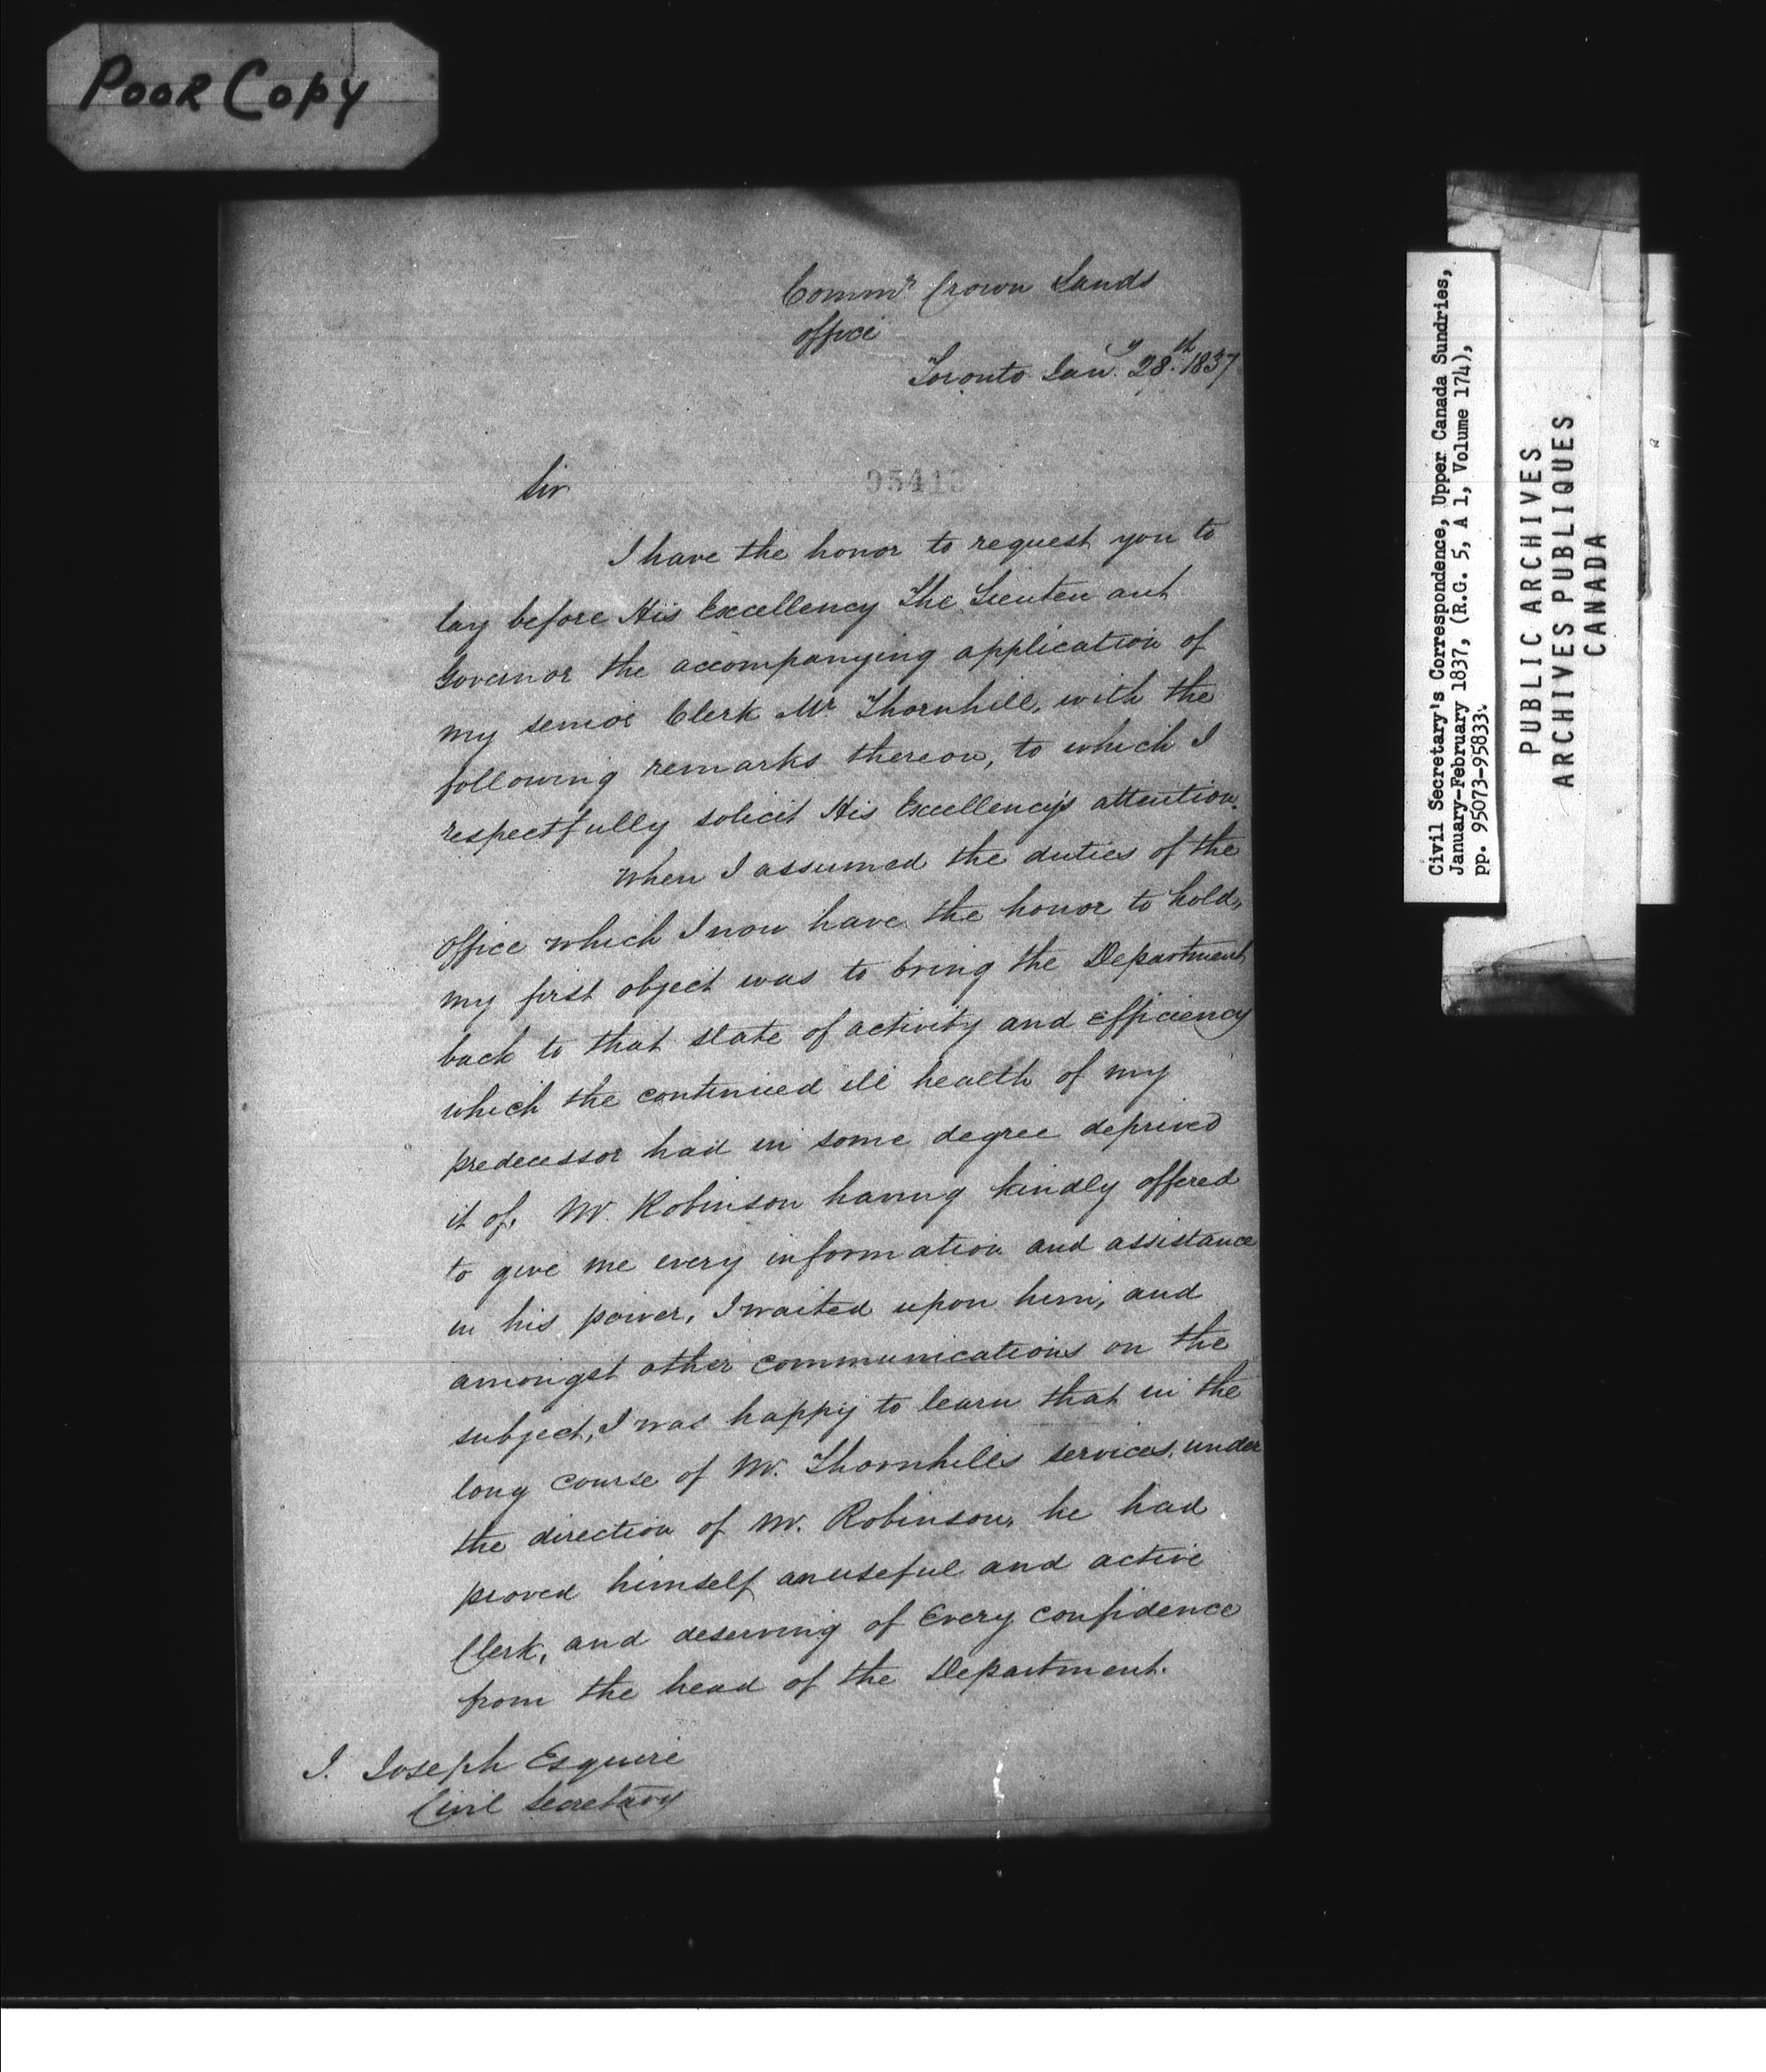 Poor Copy
Commr Crown Lands
Office
Toronto Jany. 28th. 1837
Sir
I have the honor to request you to
lay before His Excellency The Lieuten ant
Governor the accompanying application of
my senior Clerk Mr Thornhill, with the
following remarks thereon, to which I
respectfully solicit His Excellency's attention.
When I assumed the duties of the
Office which I now have the honor to hold,
my first object was to bring the Department
back to that state of activity and Efficiency
which the continued ill health of my
predecessor had in some degree deprived
it of. Mr. Robinson having kindly offered
to give me every information and assistance
in his power, I waited upon him, and
amongst other communications on the
subject, I was happy to learn that in the
long course of Mr. Thornhills services, under
the direction of Mr. Robinson, he had
proved himself an useful and active
Clerk, and deserving of Every confidence
from the head of the Department.
J. Joseph Esquire
Civil Secretary
Civil Secretary's Correspondence, Upper Canada Sundries,
January-February 1837, (R.G. 5, A 1, Volume 174),
pp. 95073-95833.
PUBLIC ARCHIVES
ARCHIVES PUBLIQUES
CANADA